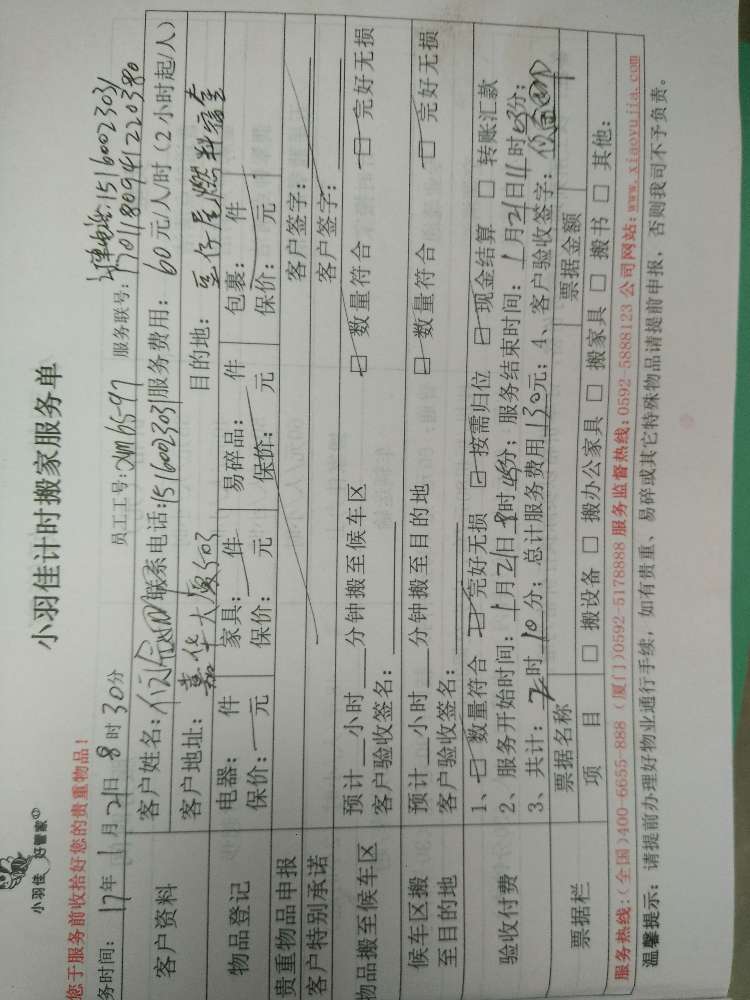 小羽佳 好管家
小羽佳计时搬家服务单
您于服务前收拾好您的贵重物品!
务时间: 17年 1月21日 8时30分 员工工号: XM65-97 服务联号:
电话:15160023031
客户资料 客户姓名: 联系电话:15160023031 服务费用: 60元/人/时(2小时起/人)
客户地址: 嘉华大厦503 目的地:
物品登记 电器: 件 家具: 件 易碎品: 件 包裹: 件
保价: 元 保价: 元 保价: 元 保价: 元
贵重物品申报 客户签字:
客户特别承诺 客户签字:
物品搬至候车区 预计__小时__分钟搬至候车区 数量符合 完好无损
客户验收签名:
候车区搬至目的地 预计__小时__分钟搬至目的地 数量符合 完好无损
客户验收签名:
验收付费 1、数量符合 完好无损 按需归位 现金结算 转账汇款
2、服务开始时间: 1月21日8时45分; 服务结束时间: 1月21日11时03分;
3、共计: 2时10分; 总计服务费用130元; 4、客户验收签字:
票据栏 票据名称 票据金额
项目 搬设备 搬办公家具 搬家具 搬书 其他:
服务热线:(全国)400-6655-888 (厦门)0592-5178888 服务监督热线:0592-5888123 公司网站:www.xiaoyujia.com
温馨提示: 请提前办理好物业通行手续,如有贵重、易碎或其它特殊物品请提前申报,否则我司不予负责。